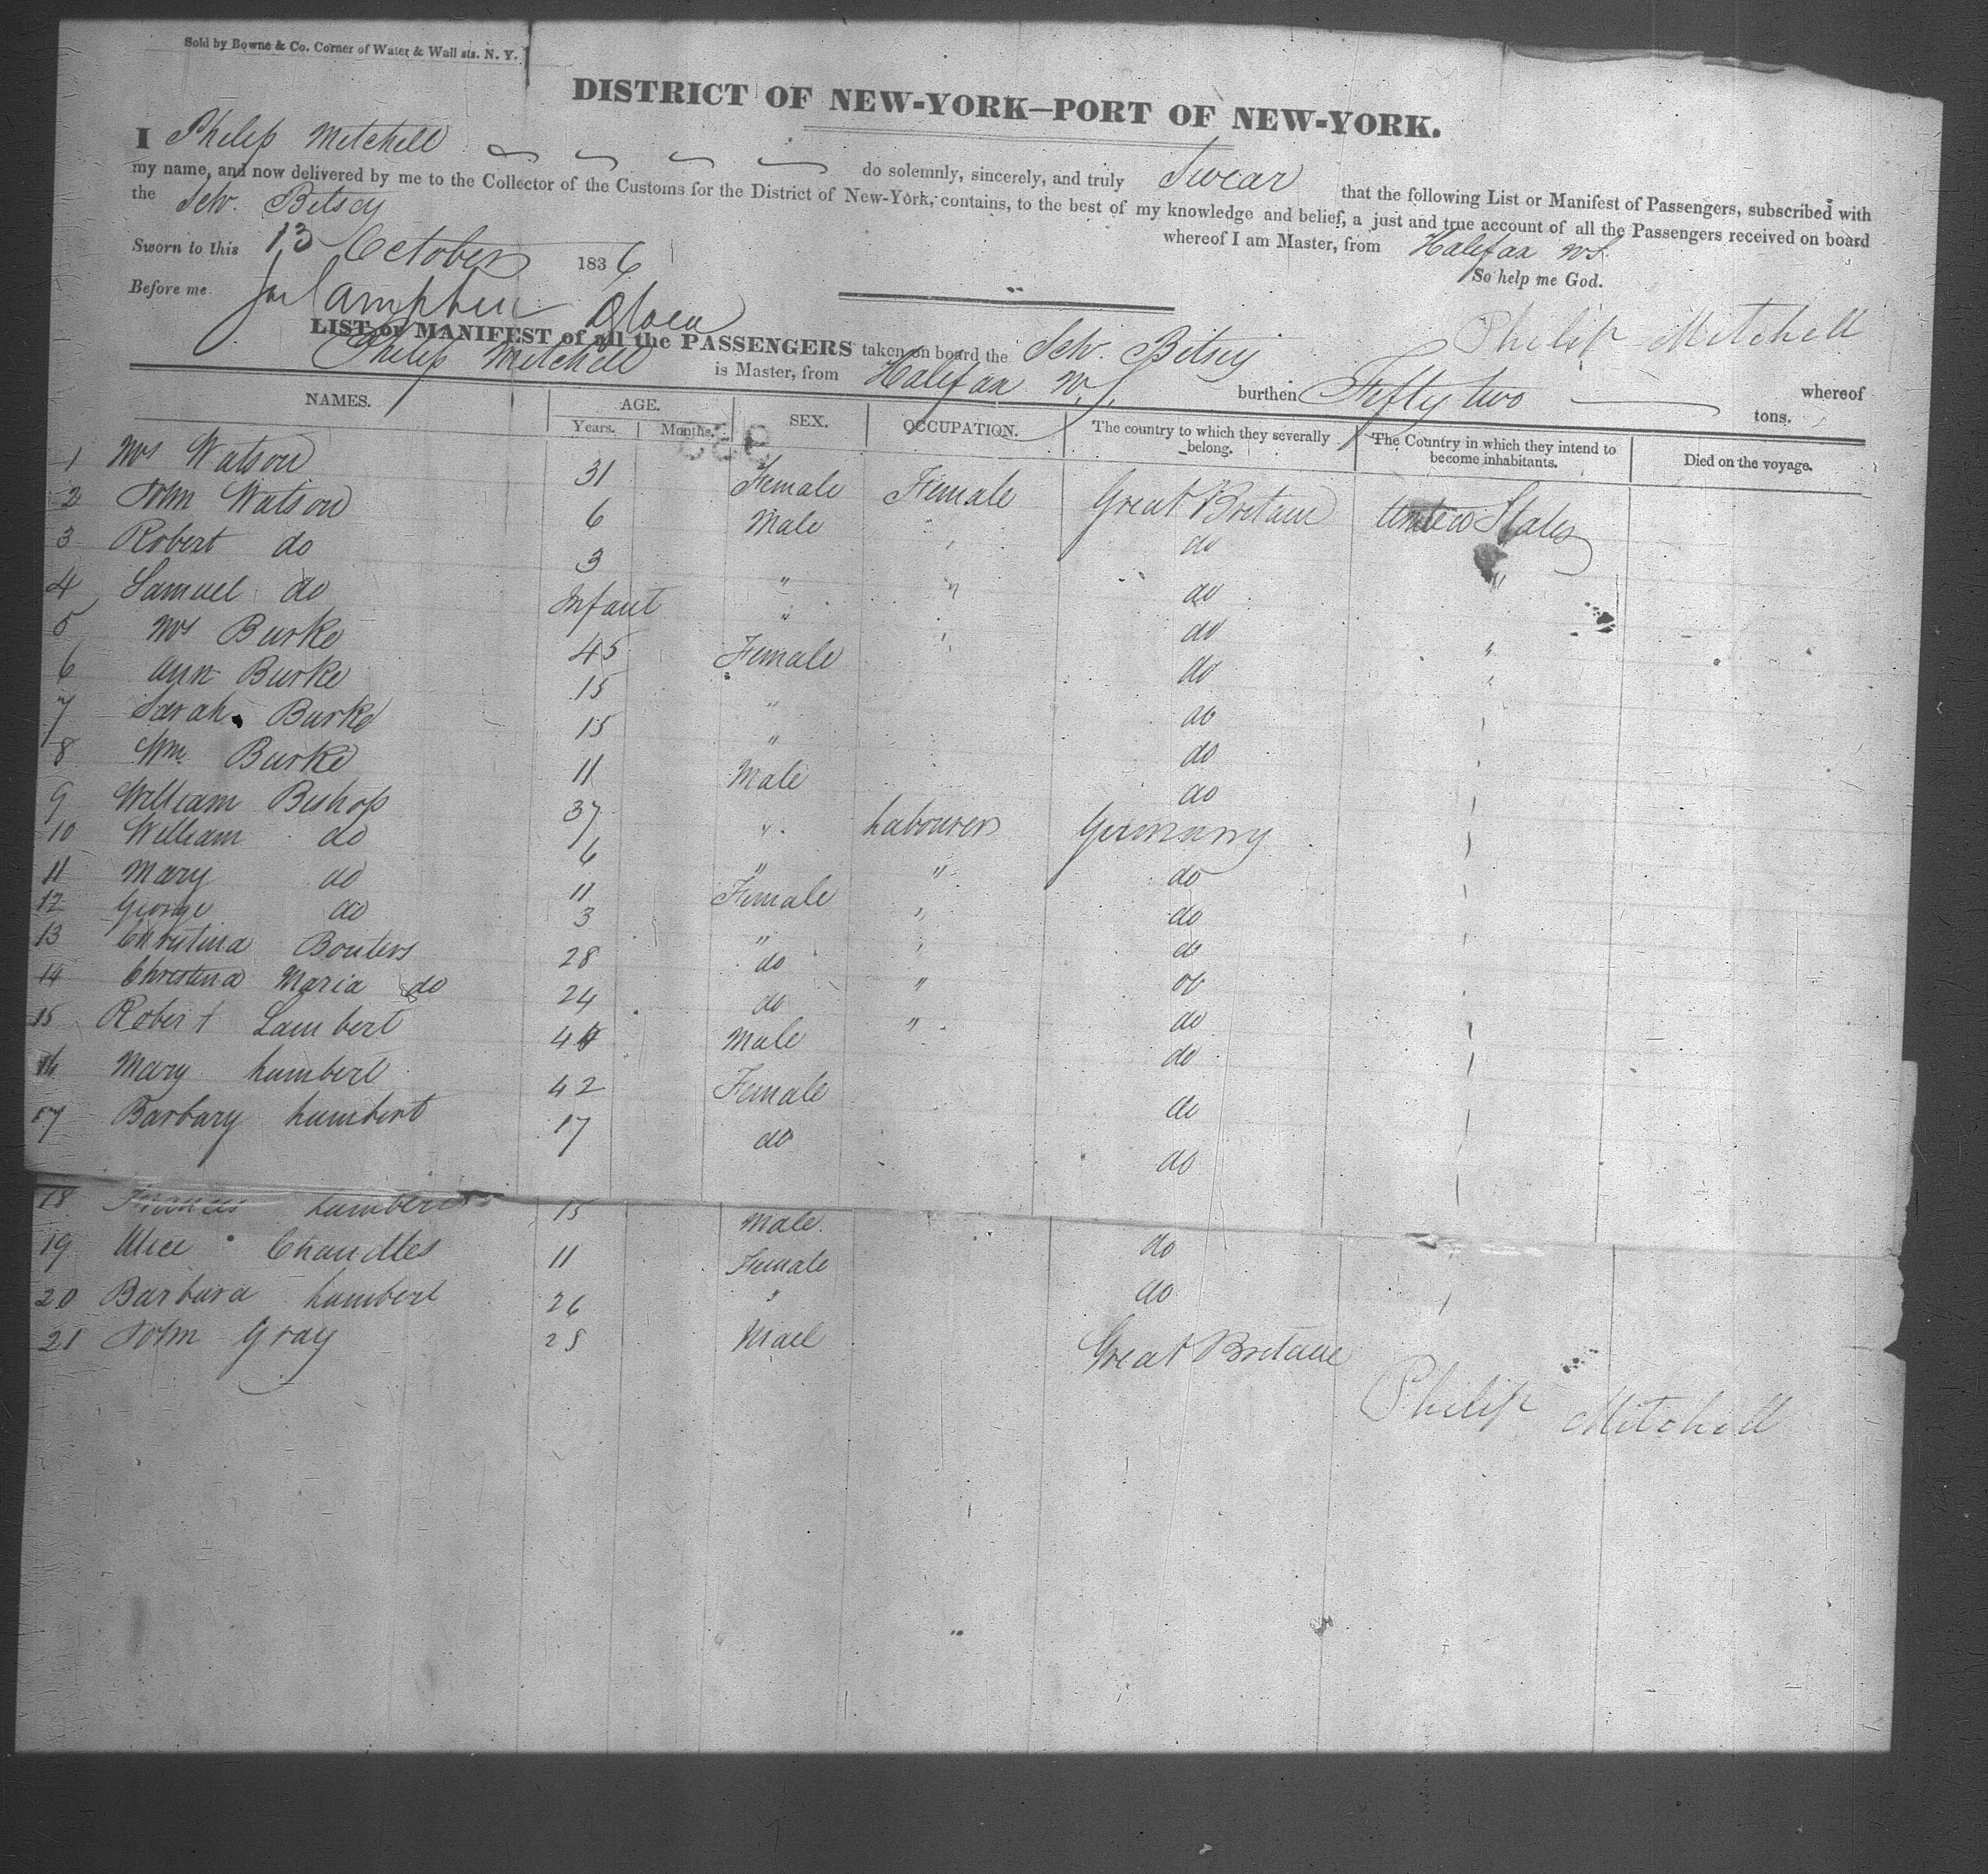 Sold by Bowne & Co. Corner of Water & Wall sts. N. Y.
DISTRICT OF NEW-YORK—PORT OF NEW-YORK.
I Philip Mitchell do solemnly, sincerely, and truly Swear that the following List or Manifest of Passengers, subscribed with
my name, and now delivered by me to the Collector of the Customs for the District of New-York, contains, to the best of my knowledge and belief, a just and true account of all the Passengers received on board
the Schr. Betsey whereof I am Master, from Halifax N.S.
Sworn to this 13 October 1836 So help me God.
Before me
Philip Mitchell
LIST or MANIFEST of all the PASSENGERS taken on board the Schr. Betsey whereof
Philip Mitchell is Master, from Halifax N.S. burthen Fifty two tons.
NAMES. AGE. SEX. OCCUPATION. The country to which they severally belong. The Country in which they intend to become inhabitants. Died on the voyage.
Years. Months.
1 Mrs Watson 31 Female Female Great Britain United States
2 John Watson 6 Male " do "
3 Robert do 3 " " do
4 Samuel do Infant " " do "
5 Mrs Burke 45 Female do "
6 Ann Burke 15 " do "
7 Sarah Burke 15 " do "
8 Wm. Burke 11 Male do "
9 William Bishop 37 " Labourer Germany "
10 William do 6 " " do "
11 Mary do 11 Female " do "
12 George do 3 " " do "
13 Christina Bouters 28 do " do "
14 Christina Maria do 24 do " do "
15 Robert Lambert Male do "
16 Mary Lambert 42 Female do "
17 Barbary Lambert 17 do do "
18 Frances Lambert 15 Male do
19 Alice Chandles 11 Female do
20 Barbara Lambert 26 "
21 John Gray 28 Mael Great Britain
Philip Mitchell